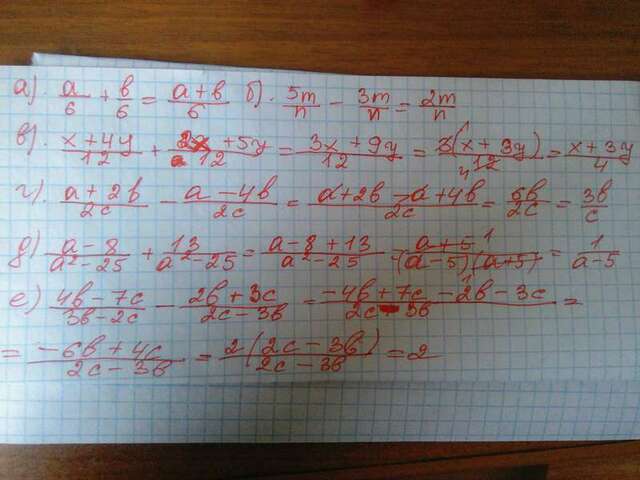 а). a/6 + в/6 = (a+в)/6 б). 5m/n - 3m/n = 2m/n
в). (x+4y)/12 + (2x+5y)/12 = (3x+9y)/12 = 3(x+3y)/12 = (x+3y)/4
г). (a+2в)/2c - (a-4в)/2c = (a+2в-a+4в)/2c = 6в/2c = 3в/c
д) (a-8)/(a²-25) + 13/(a²-25) = (a-8+13)/(a²-25) = (a+5)/((a-5)(a+5)) = 1/(a-5)
е) (4в-7c)/(3в-2c) - (2в+3c)/(2c-3в) = (-4в+7c-2в-3c)/(2c-3в) =
= (-6в+4c)/(2c-3в) = 2(2c-3в)/(2c-3в) = 2